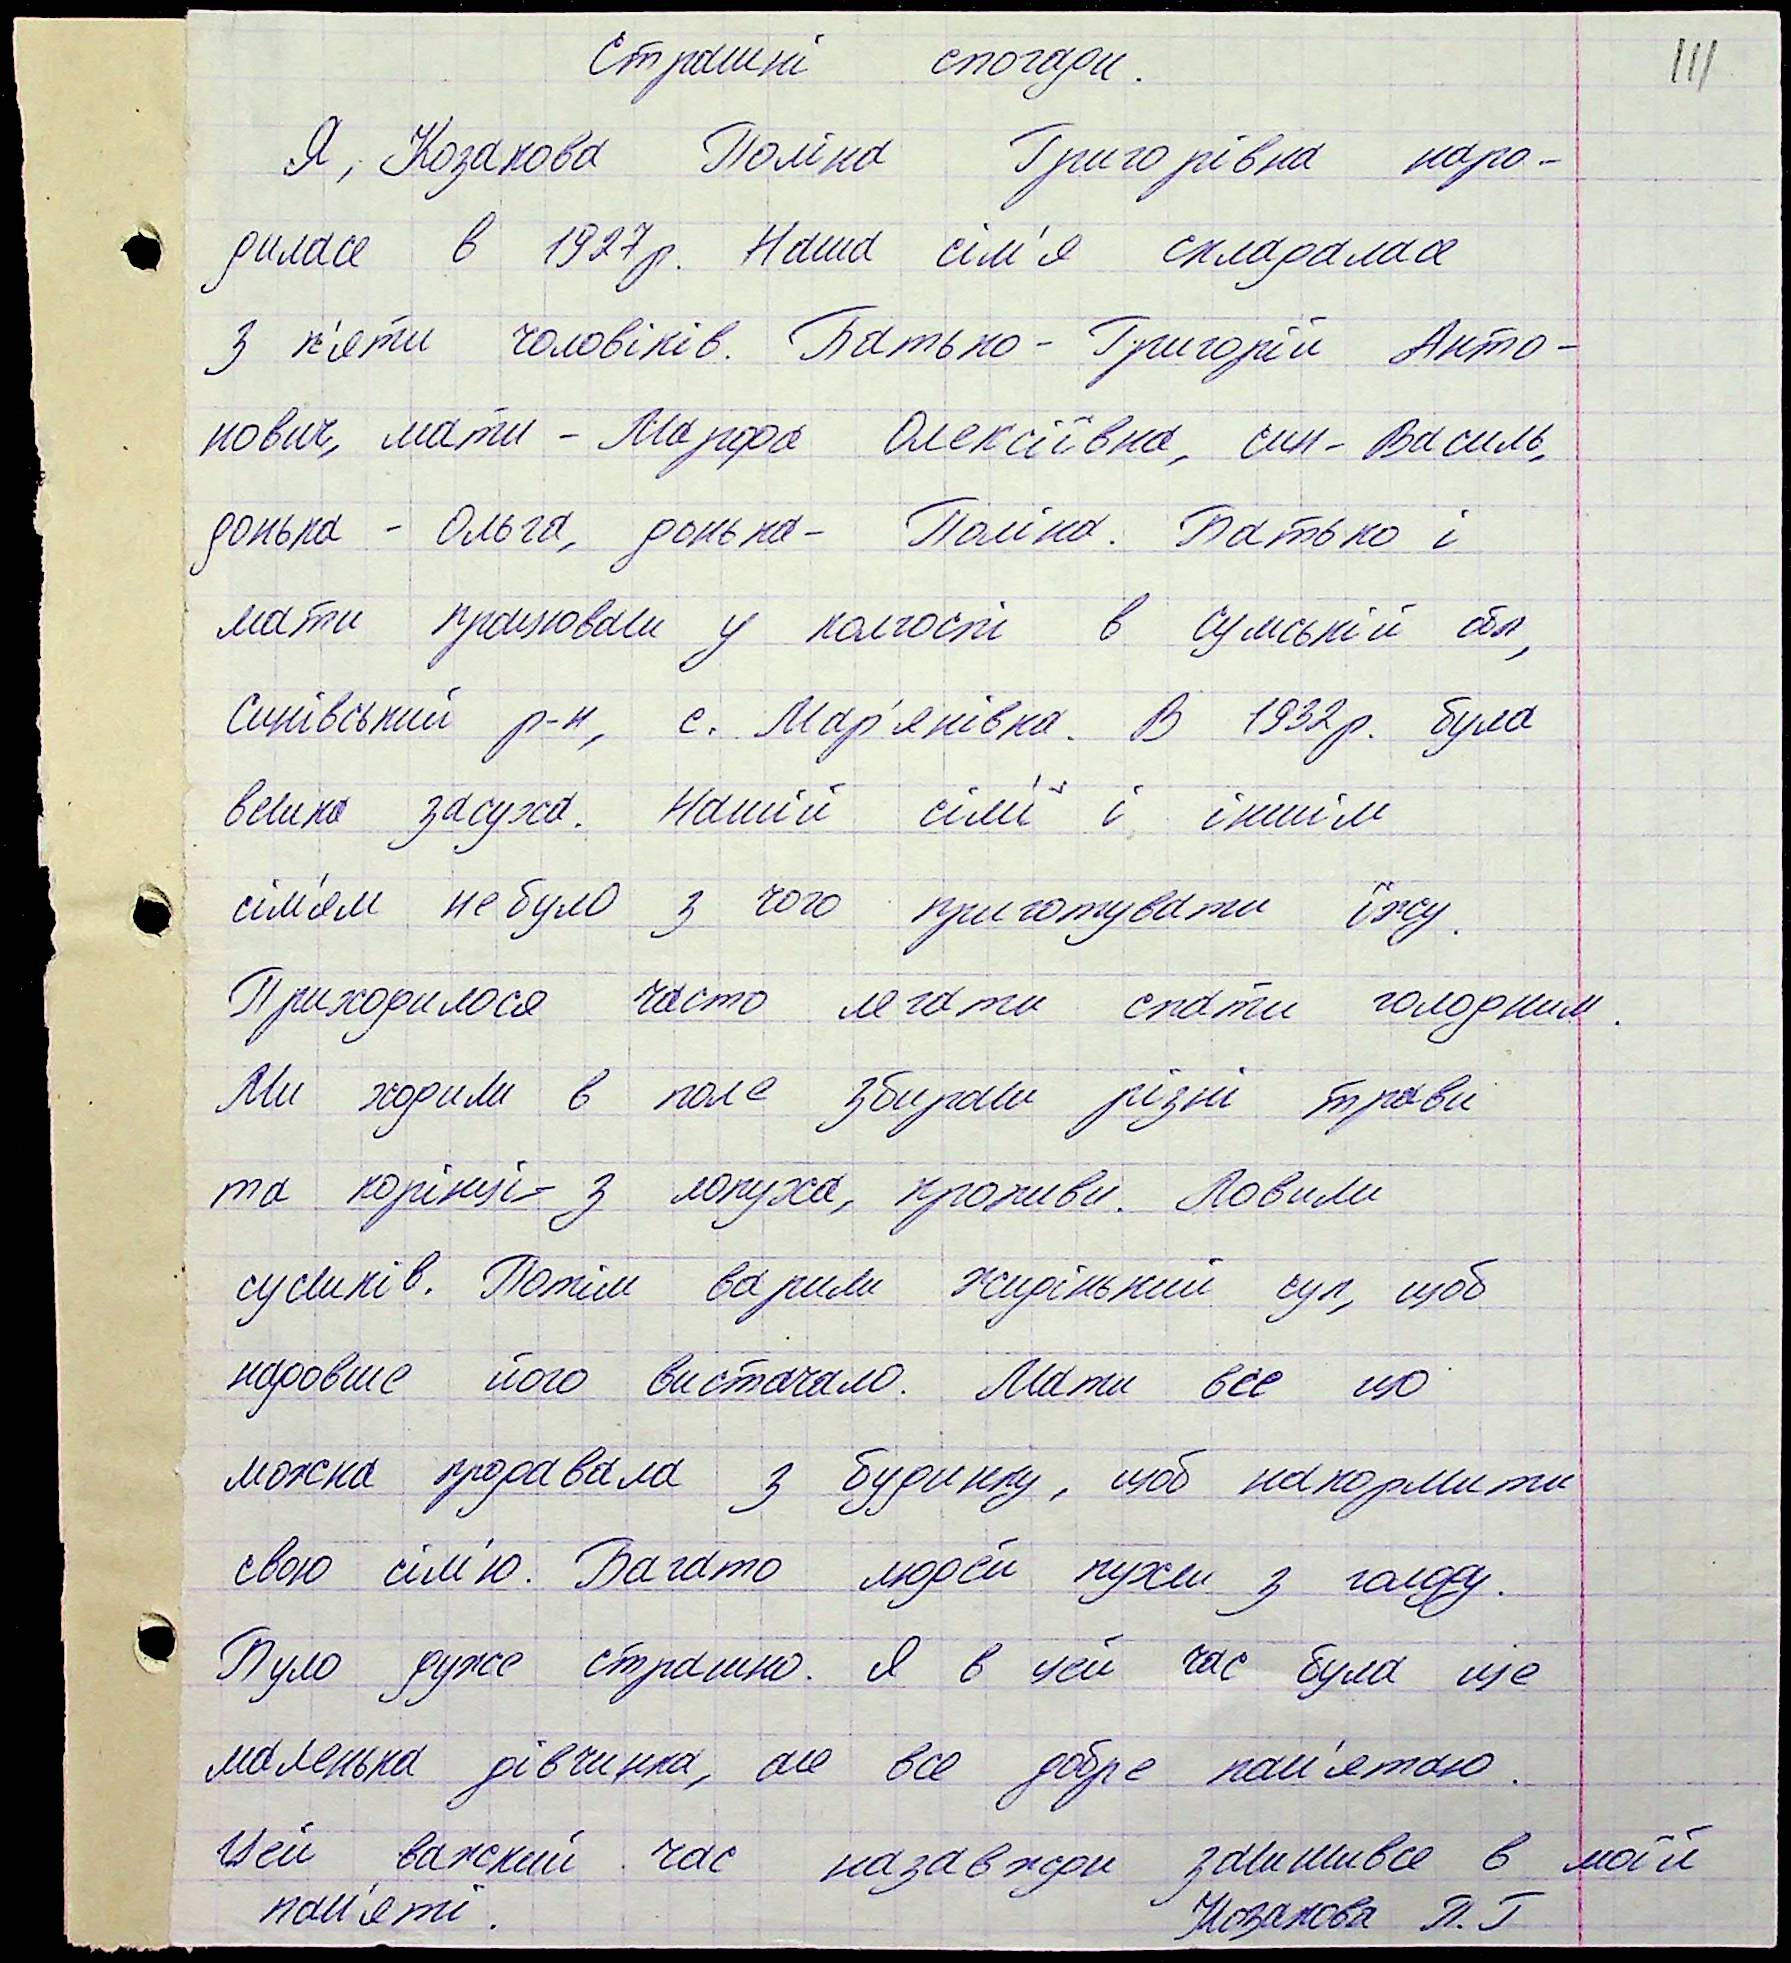 Страшні спогади.
111
Я, Козакова Поліна Григорівна наро-
дилася в 1927р. Наша сім'я складалася
з п'яти чоловіків. Батько - Григорій Анто-
нович, мати - Марфа Олексіївна, син - Василь,
донька - Ольга, донька - Поліна. Батько і
мати працювали у колгоспі в Сумській обл,
Синівський р-н, с. Мар'янівка. В 1932р. була
велика засуха. Нашій сім'ї і іншім
сім'ям не було з чого приготувати їжу.
Приходилося часто лягати спати голодним.
Ми ходили в поле збирали різні трави
та корінці - з лопуха, кропиви. Ловили
сусликів. Потім варили жидінький суп, щоб
надовше його вистачало. Мати все що
можна продавала з будинку, щоб накормити
свою сім'ю. Багато людей пухли з голоду.
Було дуже страшно. Я в цей час була ще
маленька дівчинка, але все добре пам'ятаю.
Цей важкий час назавжди залишився в моїй
пам'яті. Козакова П.Г